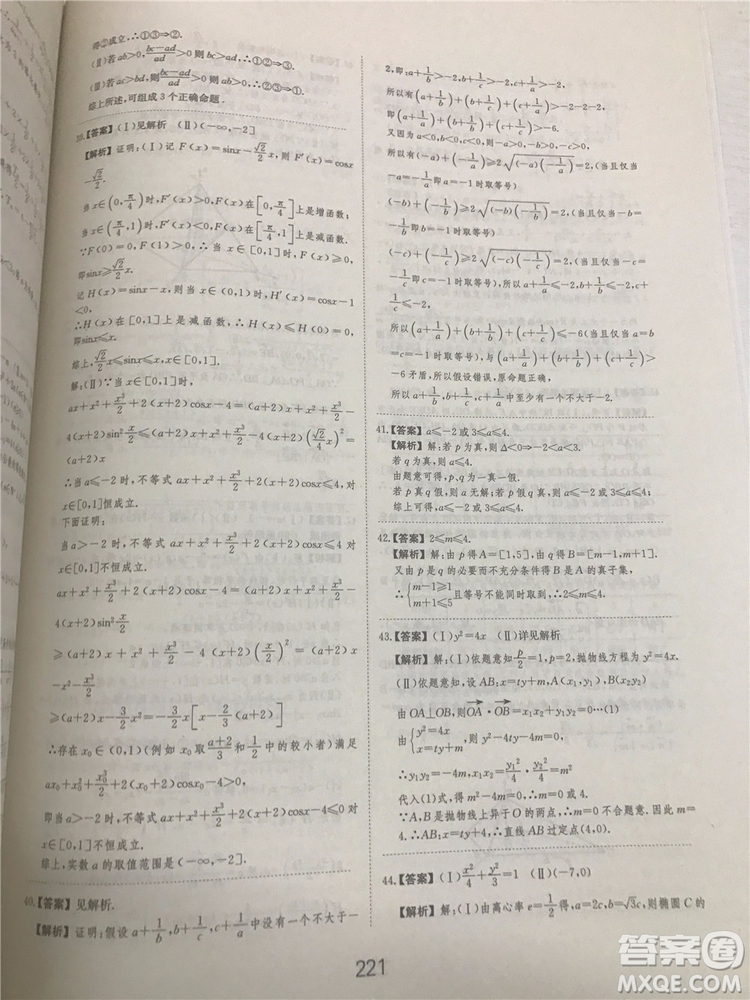 得②成立,∴①③⇒②.
(Ⅱ)若ab>0,(bc-ad)/(ad)>0 则bc>ad,∴①②⇒③.
综上所述,可组成3个正确命题.
【答案】(Ⅰ)见解析 (Ⅱ)(-∞,-2]
【解析】证明:(Ⅰ)记 F(x)=sinx-(√2/2)x,则 F′(x)=cosx
-√2/2.
当x∈(0,π/4)时,F′(x)>0,F(x)在[0,π/4]上是增函数;
当x∈(π/4,1)时,F′(x)<0,F(x)在[π/4,1]上是减函数.
∵F(0)=0,F(1)>0,∴当x∈[0,1]时,F(x)≥0,
即sinx≥(√2/2)x.
记 H(x)=sinx-x,则当x∈(0,1)时,H′(x)=cosx-1
<0,
∴H(x)在[0,1]上是减函数,则H(x)≤H(0)=0,
即sinx≤x.
综上,(√2/2)x≤sinx≤x,x∈[0,1].
解:(Ⅱ)∵当x∈[0,1]时,
ax+x²+x³/2+2(x+2)cosx-4=(a+2)x+x²+x³/2-
4(x+2)sin²(x/2)≤(a+2)x+x²+x³/2-4(x+2)((√2/4)x)²
=(a+2)x.
∴当a≤-2时,不等式ax+x²+x³/2+2(x+2)cosx≤4,对
x∈[0,1]恒成立.
下面证明:
当a>-2时,不等式 ax+x²+x³/2+2(x+2)cosx≤4 对
x∈[0,1]不恒成立.
ax+x²+x³/2+2(x+2)cosx-4=(a+2)x+x²+x³/2-
4(x+2)sin²(x/2)
≥(a+2)x+x²+x³/2-4(x+2)(x/2)²=(a+2)x
-x²-x³/2
≥(a+2)x-(3/2)x²=-(3/2)x[x-(2/3)(a+2)]
∴存在x₀∈(0,1)(例如x₀取(a+2)/3和1/2中的较小者)满足
ax₀+x₀²+x₀³/2+2(x₀+2)cosx₀-4>0,
即当a>-2时,不等式ax+x²+x³/2+2(x+2)cosx-4≤0对
x∈[0,1]不恒成立.
综上,实数a的取值范围是(-∞,-2].
40.【答案】见解析.
【解析】证明:假设a+1/b,b+1/c,c+1/a中没有一个不大于-
2,即:a+1/b>-2,b+1/c>-2,c+1/a>-2
所以有(a+1/b)+(b+1/c)+(c+1/a)>-2-2-2,
即(a+1/b)+(b+1/c)+(c+1/a)>-6.
又因为a<0,b<0,c<0,
所以有(-a)+(-1/a)≥2√((-a)(-1/a))=2,(当且仅当
a=-1/a即a=-1时取等号)
(-b)+(-1/b)≥2√((-b)(-1/b))=2,(当且仅当-b=
-1/b即b=-1时取等号)
(-c)+(-1/c)≥2√((-c)(-1/c))=2,(当且仅当-c=
-1/c即c=-1时取等号),所以a+1/a≤-2,b+1/b≤-2,c+1/c
≤-2,
所以(a+1/b)+(b+1/c)+(c+1/a)≤-6(当且仅当a=b
=c=-1时取等号)这与(a+1/b)+(b+1/c)+(c+1/a)>
-6矛盾,所以假设错误,原命题正确,
所以a+1/b,b+1/c,c+1/a中至少有一个不大于-2.
41.【答案】a≤-2或3≤a≤4.
【解析】解:若p为真,则Δ<0⇒-2<a<3.
若q为真,则a≤4.
由题意可得,p与q一真一假.
若p真q假,则a无解;若p假q真,则a≤-2或3≤a≤4;
综上可得,a≤-2或3≤a≤4.
42.【答案】2≤m≤4.
【解析】解:由p得A=[1,5],由q得B=[m-1,m+1].
又由p是q的必要而不充分条件得B是A的真子集,
∴{m-1≥1
m+1≤5且等号不能同时取到,∴2≤m≤4.
43.【答案】(Ⅰ)y²=4x (Ⅱ)详见解析
【解析】解:(Ⅰ)依题意知p/2=1,p=2,抛物线方程为y²=4x.
(Ⅱ)依题意,设AB:x=ty+m,A(x₁,y₁),B(x₂,y₂)
由OA⊥OB,则OA·OB=x₁x₂+y₁y₂=0⋯(1)
由{y²=4x
x=ty+m,则y²-4ty-4m=0,
∴y₁y₂=-4m,x₁x₂=y₁²/4·y₂²/4=m²
代入(1)式,得m²-4m=0,∴m=4或m=0.
∵A,B是抛物线上异于O的两点,∴m=0不合题意.∴m=
4.∴AB:x=ty+4,∴直线AB过定点(4,0).
44.【答案】(Ⅰ)x²/4+y²/3=1 (Ⅱ)(-7,0)
【解析】解:(Ⅰ)由离心率e=1/2,得a=2c,b=√3c,则椭圆C的
221
答案圈
MXQE.COM